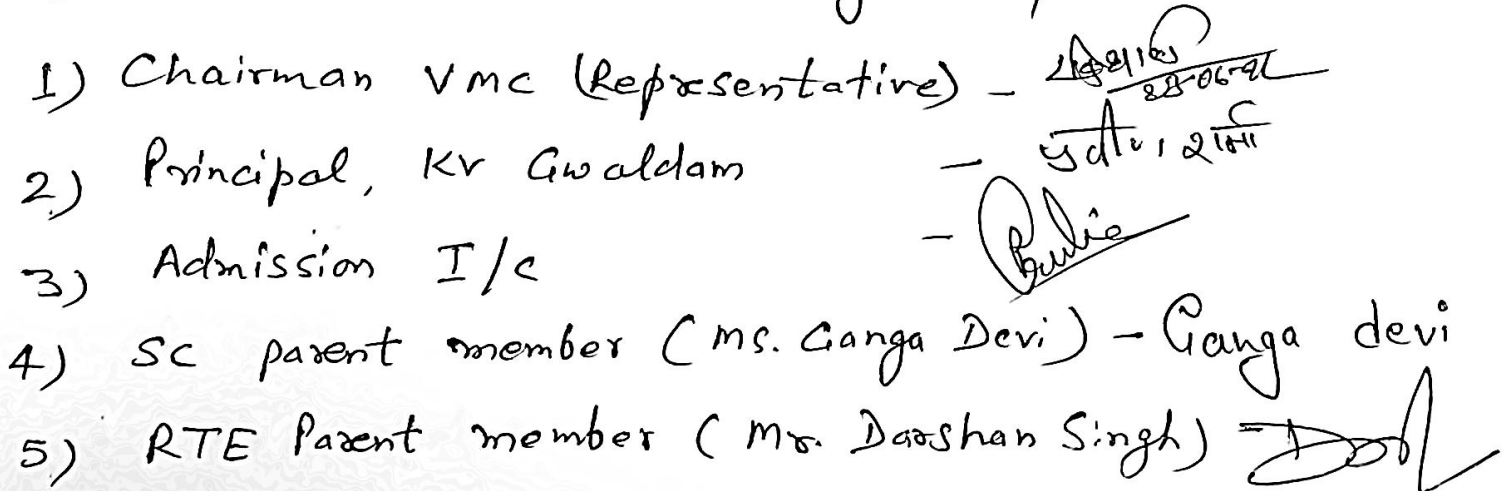 1) Chairman VMC (Representative) -
2) Principal, KV Gwaldam - शर्मा
3) Admission I/C -
4) SC parent member (Ms. Ganga Devi) - Ganga devi
5) RTE Parent member (Mr. Darshan Singh)